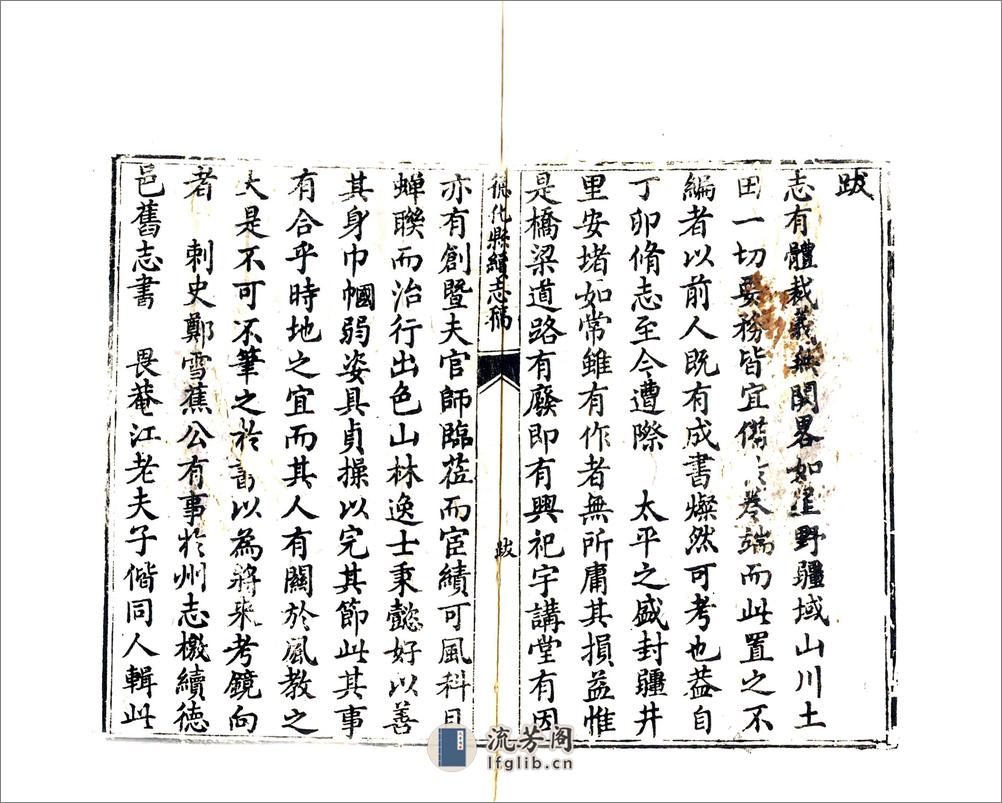 跋
志有體裁義無闕畧如星野疆域山川土
田一切要務皆宜備 卷端而此置之不
編者以前人既有成書燦然可考也葢自
丁卯脩志至今遭際 太平之盛封疆井
里安堵如常雖有作者無所庸其損益惟
是橋梁道路有廢即有興祀宇講堂有因
德化縣續志稿 跋
亦有創暨夫官師臨莅而宦績可風科目
蟬聯而治行出色山林逸士秉懿好以善
其身巾幗弱姿具貞操以完其節此其事
有合乎時地之宜而其人有關於風教之
大是不可不筆之於 以為將來考鏡向
者 刺史鄭雪蕉公有事於州志檄續德
邑舊志書 畏菴江老夫子偕同人輯此
流芳阁
lfglib.cn